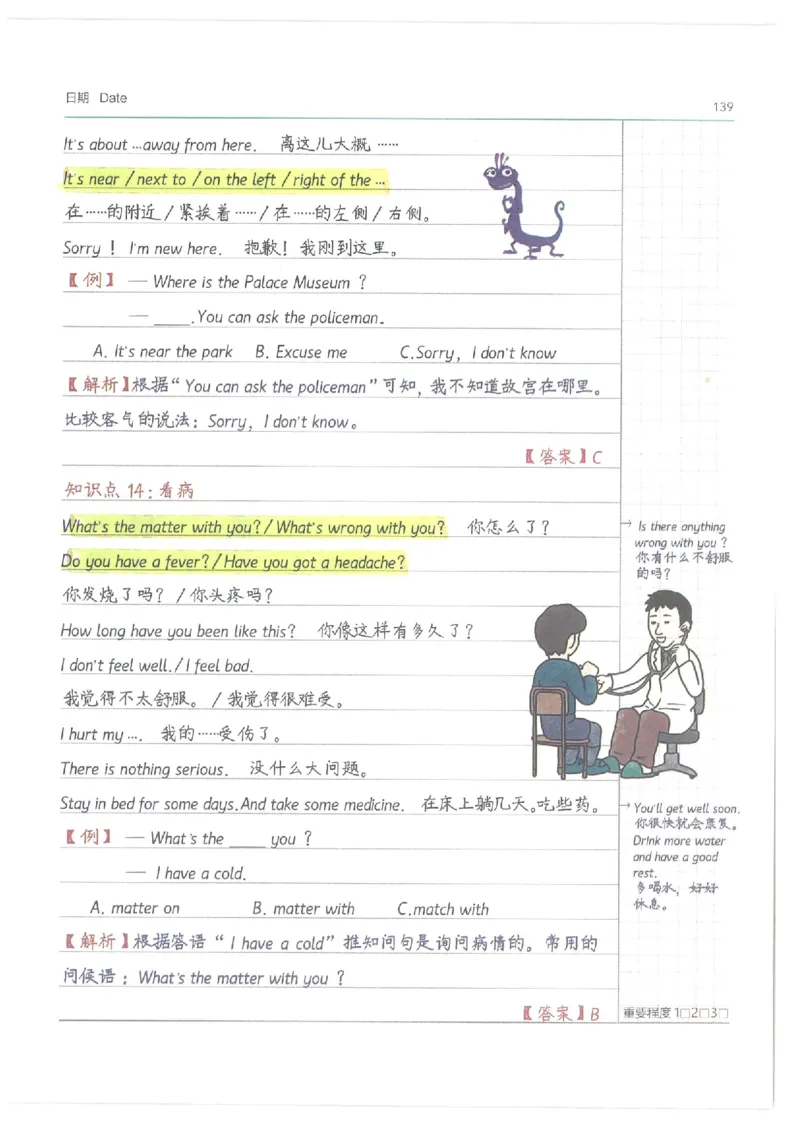 日期 Date
139
It's about …away from here. 离这儿大概……
It's near / next to / on the left / right of the …
在……的附近 / 紧挨着…… / 在……的左侧 / 右侧。
Sorry！ I'm new here. 抱歉！我刚到这里。
【例】 — Where is the Palace Museum ?
— ____. You can ask the policeman.
A. It's near the park B. Excuse me C.Sorry, I don't know
【解析】根据“You can ask the policeman”可知，我不知道故宫在哪里。
比较客气的说法：Sorry, I don't know。
【答案】C
知识点 14：看病
What's the matter with you? / What's wrong with you? 你怎么了？
Do you have a fever? / Have you got a headache?
你发烧了吗？ / 你头疼吗？
How long have you been like this? 你像这样有多久了？
I don't feel well. / I feel bad.
我觉得不太舒服。 / 我觉得很难受。
I hurt my …. 我的……受伤了。
There is nothing serious. 没什么大问题。
Stay in bed for some days.And take some medicine. 在床上躺几天。吃些药。
【例】 — What's the ____ you ?
— I have a cold.
A. matter on B. matter with C.match with
【解析】根据答语“I have a cold”推知问句是询问病情的。常用的
问候语：What's the matter with you ?
【答案】B
→ Is there anything
wrong with you ?
你有什么不舒服
的吗？
→ You'll get well soon.
你很快就会康复。
Drink more water
and have a good
rest.
多喝水，好好
休息。
重要程度 1□2□3□